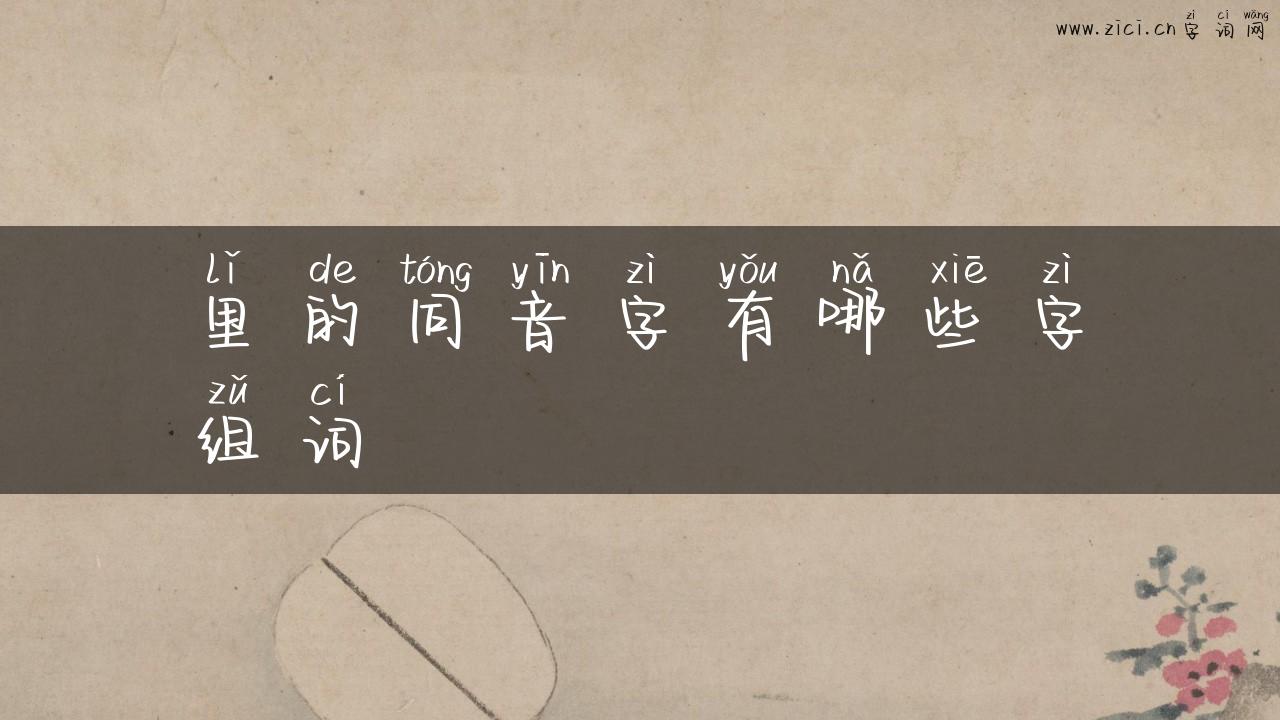 zì cí wǎng
www.zici.cn 字词网
lǐ de tóng yīn zì yǒu nǎ xiē zì
里的同音字有哪些字
zǔ cí
组词